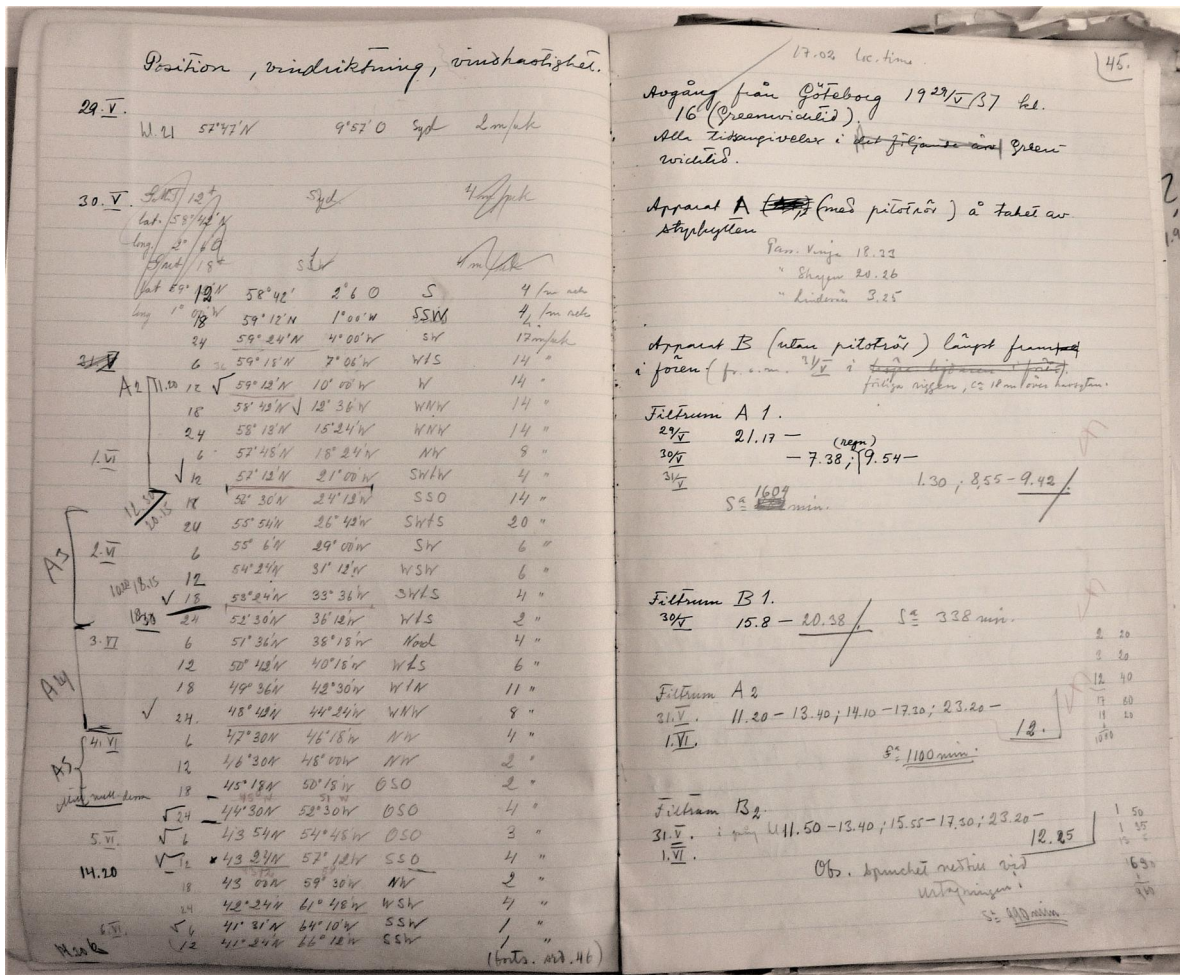 Position, vindriktning, vindhastighet.
29.V.
kl. 21 57°47'N 9°57'O Syd 2 m/sek
30.V. 12+ Syd 4 m/sek
lat. 58°42'N
long. 2° 6'O
18+ SSW 4 m/sek
lat 59° 12'N
long 1° 00'W
12 58°42' 2°6'O S 4 /m sek
18 59°12'N 1°00'W SSW 4 /m sek
24 59°24'N 4°00'W SW 17 m/sek
31.V 6 59°18'N 7°06'W WtS 14 "
A2 11.20 12 √ 59°12'N 10°00'W W 14 "
18 58°42'N √ 12°36'W WNW 14 "
24 58°18'N 15°24'W WNW 14 "
1.VI 6 57°48'N 18°24'W NW 8 "
√ 12 57°12'N 21°00'W SWtW 4 "
12.50 18 56°30'N 24°12'W SSO 14 "
20.15 24 55°54'N 26°42'W SWtS 20 "
A3
2.VI 6 55° 6'N 29°00'W SW 6 "
12 54°24'N 31°12'W WSW 6 "
18.15 √ 18 53°24'N 33°36'W SWtS 4 "
18.30 24 52°30'N 36°12'W WtS 2 "
3.VI 6 51°36'N 38°18'W Nord 4 "
A4 12 50°42'N 40°18'W WtS 6 "
18 49°36'N 42°30'W WtN 11 "
√ 24. 48°42'N 44°24'W WNW 8 "
4.VI 6 47°30N 46°18'W NW 4 "
A5 12 46°30N 48°00'W NW 2 "
18 45°18N 50°18'W OSO 2 "
√24 44°30N 52°30W OSO 4 "
5.VI. √ 6 43 54N 54°48W OSO 3 "
14.20 √ 12 × 43 24N 57°12W SSO 4 "
18 43 00N 59°30W NW 2 "
24 42°24N 61°48W WSW 4 "
6.VI. √ 6 41°31N 64°10W SSW 1 "
12 41°24N 66°12W SSW 1 "
(forts. sid. 46)
17.02 loc. time.
45.
Avgång från Göteborg 19 29/V 37 kl.
16 (Greenwichtid).
Alla tidsangivelser i det följande äro Green-
wichtid.
Apparat A (med pitotrör) å taket av
styrhytten
Pass. Vinga 18.29
" Skagen 20.26
" Lindesnäs 3.25
Apparat B (utan pitotrör) längst fram
i fören (fr. o. m. 31/V i
förliga riggen, ca 18 m över havsytan.
Filtrum A 1.
29/V 21.17 —
30/V — 7.38; (regn) 9.54 —
31/V 1.30 ; 8,55 – 9.42
Sa = 1604 min.
Filtrum B 1.
30/V 15.8 — 20.38 Sa = 338 min.
2 20
3 20
12 40
Filtrum A 2
31.V. 11.20 – 13.40; 14.10 – 17.30; 23.20 –
1.VI. 12.
Sa = 1100 min.
Filtrum B2.
31.V. 11.50 – 13.40; 15.55 – 17.30; 23.20 –
1.VI. 12.25
1 50
1 35
Obs. spruchet nedtill vid
urtagningen.
Sa = 990 min